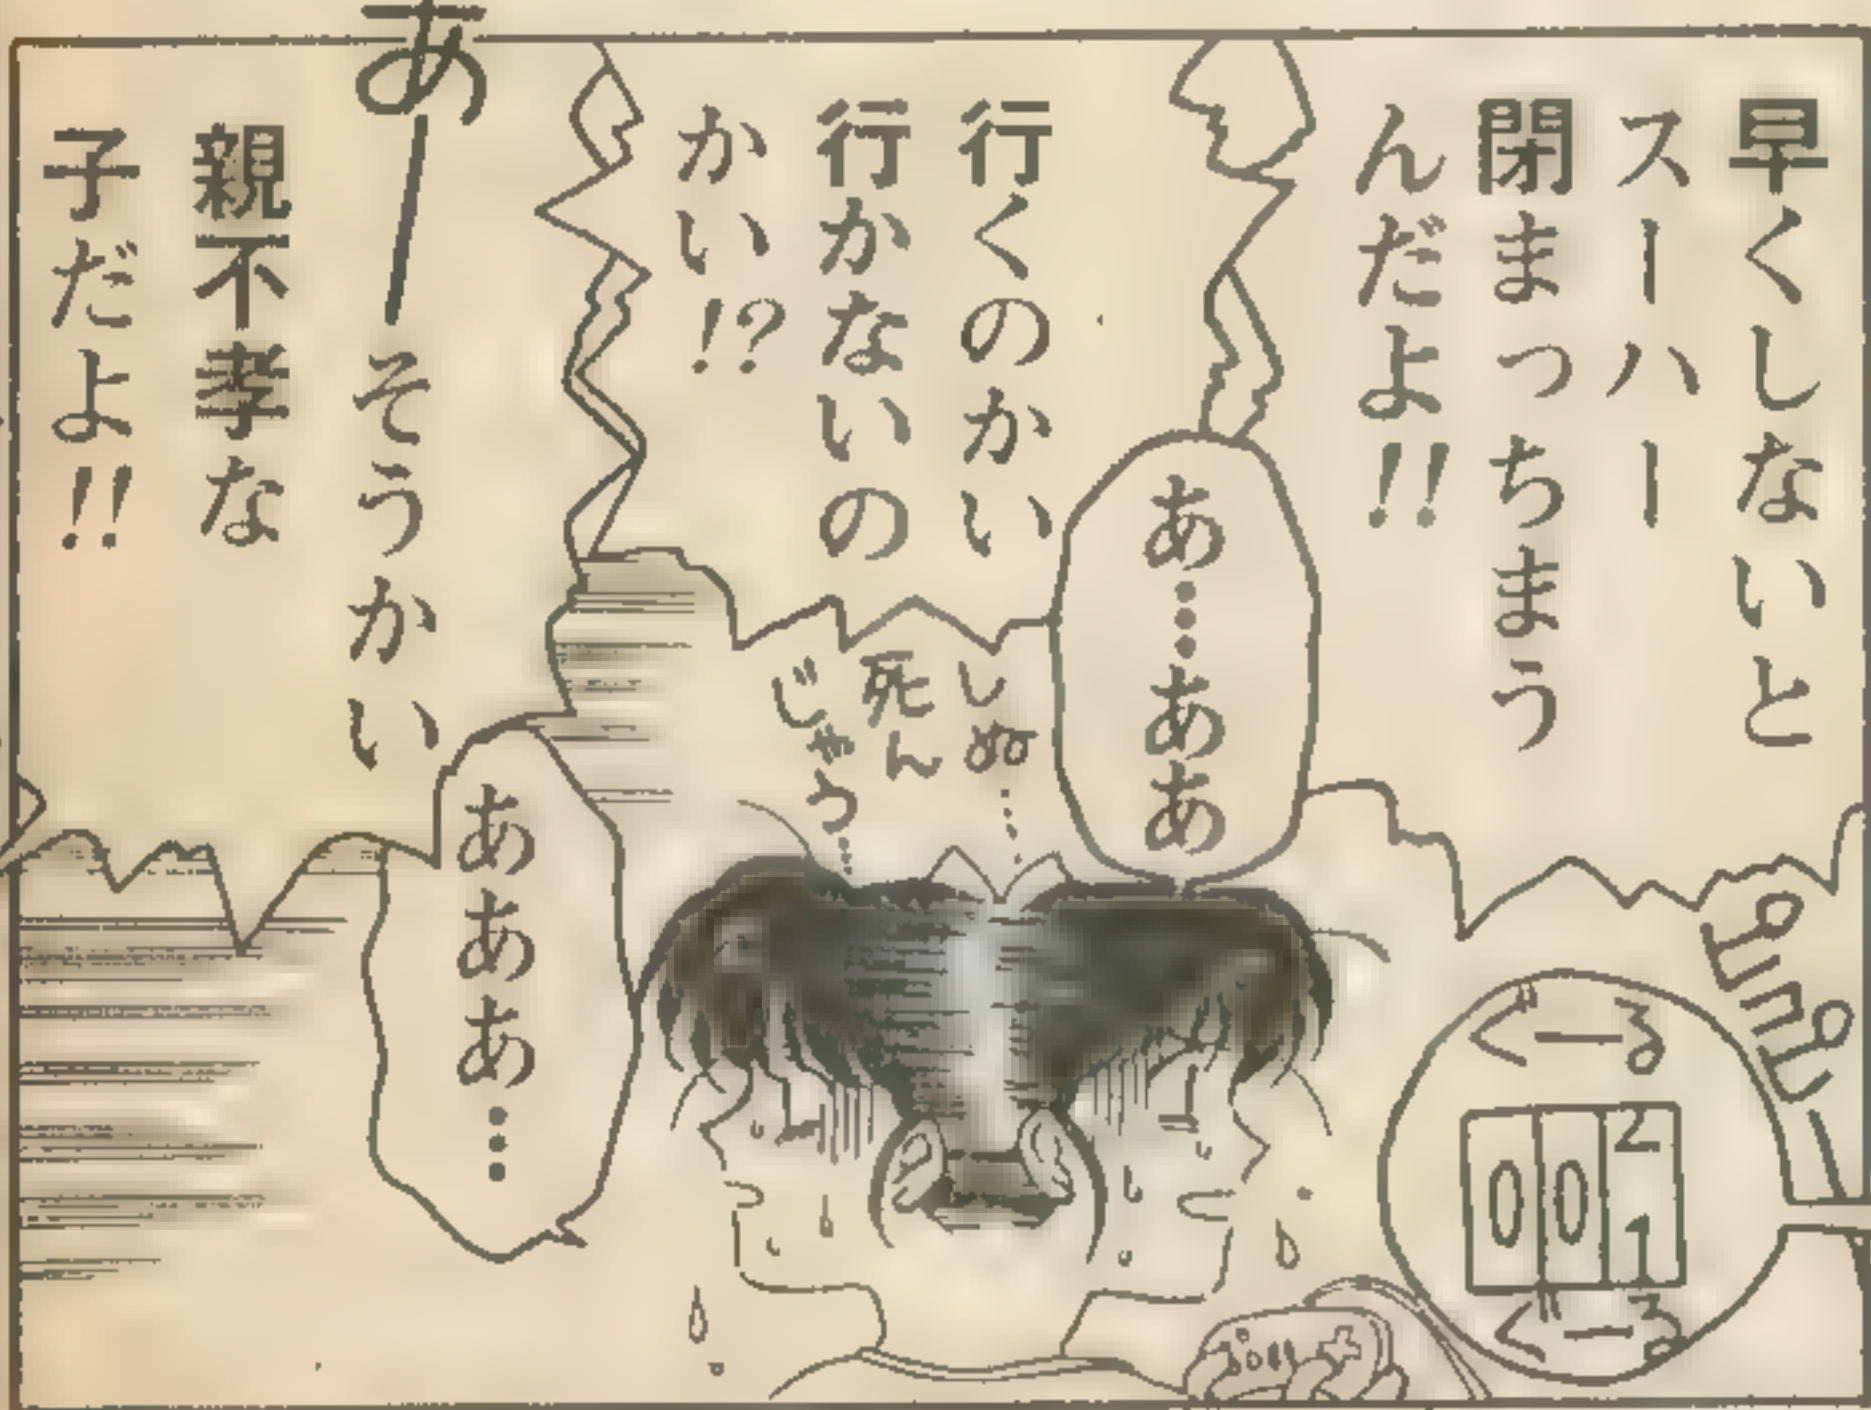 早くしないと
スーハー
閉まっちまう
んだよ!!
あ…ああ
行くのかい
行かないの
かい!?
しぬ……
死ん
じゃう…
あーそうかい
親不孝な
子だよ!!
あああ…
ぐーる
2
001
ぐーる